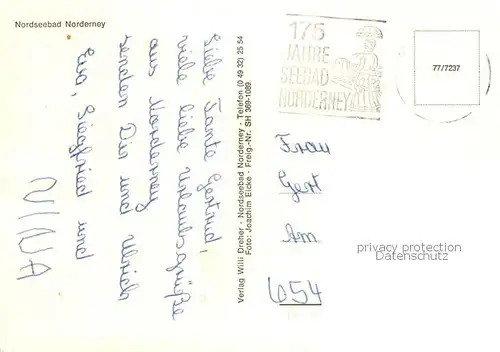 Nordseebad Norderney
Liebe Tante Gertrud,
viele liebe Urlaubsgrüße
aus Norderney
senden Dir und Ulrich
Eva, Siegfried und
NINA
Verlag Willi Dreher - Nordseebad Norderney - Telefon (0 49 32) 25 54
Foto: Joachim Eicke - Freig.-Nr. SH 369-1089
175
JAHRE
SEEBAD
NORDERNEY
77/7237
Frau
Gert
Am
654
privacy protection
Datenschutz